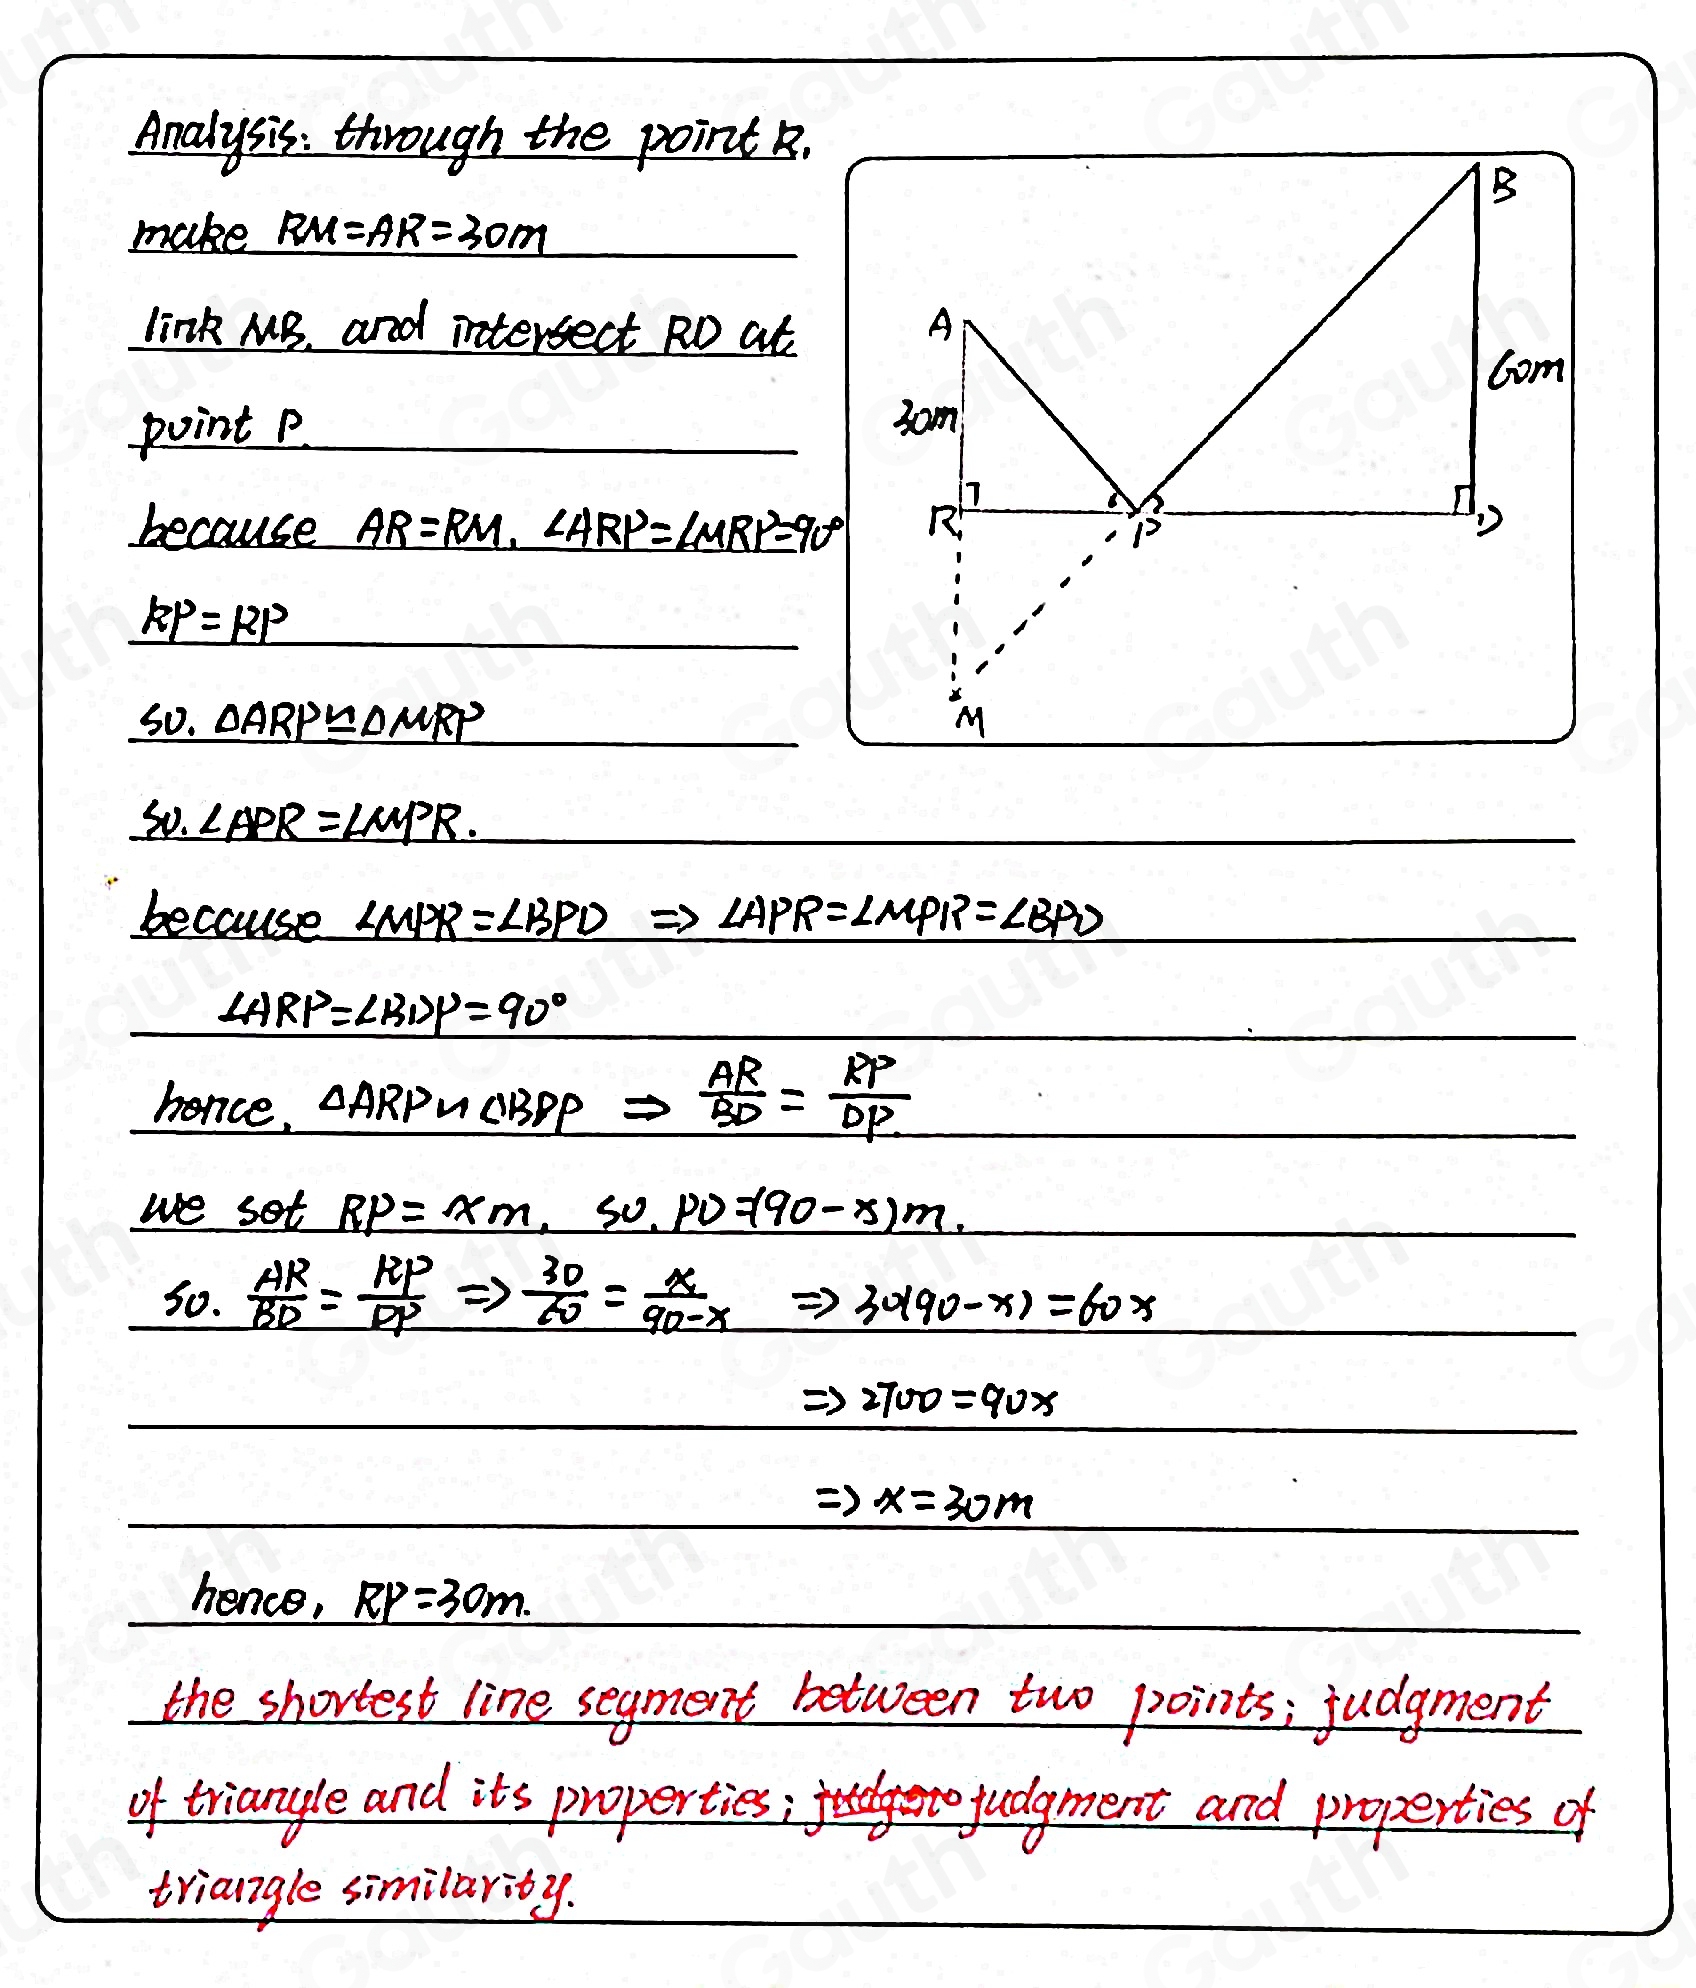 Analysis: through the point R.
make RM=AR=30m
link MB. and intersect RD at
point P.
because AR=RM. ∠ARP=∠MRP=90°
RP=RP
so. △ARP≌△MRP
so. ∠APR=∠MPR.
because ∠MPR=∠BPD ⇒ ∠APR=∠MPR=∠BPD
∠ARP=∠BDP=90°
hence, △ARP∽△BDP ⇒ AR/BD = RP/DP.
we set RP=xm. so. PD=(90-x)m.
so. AR/BD = RP/DP ⇒ 30/60 = x/90-x ⇒ 30(90-x)=60x
⇒ 2700=90x
⇒ x=30m
hence, RP=30m.
the shortest line segment between two points; judgment
of triangle and its properties; judgment and properties of
triangle similarity.
B
A
60m
30m
R
P
D
M
Gauth